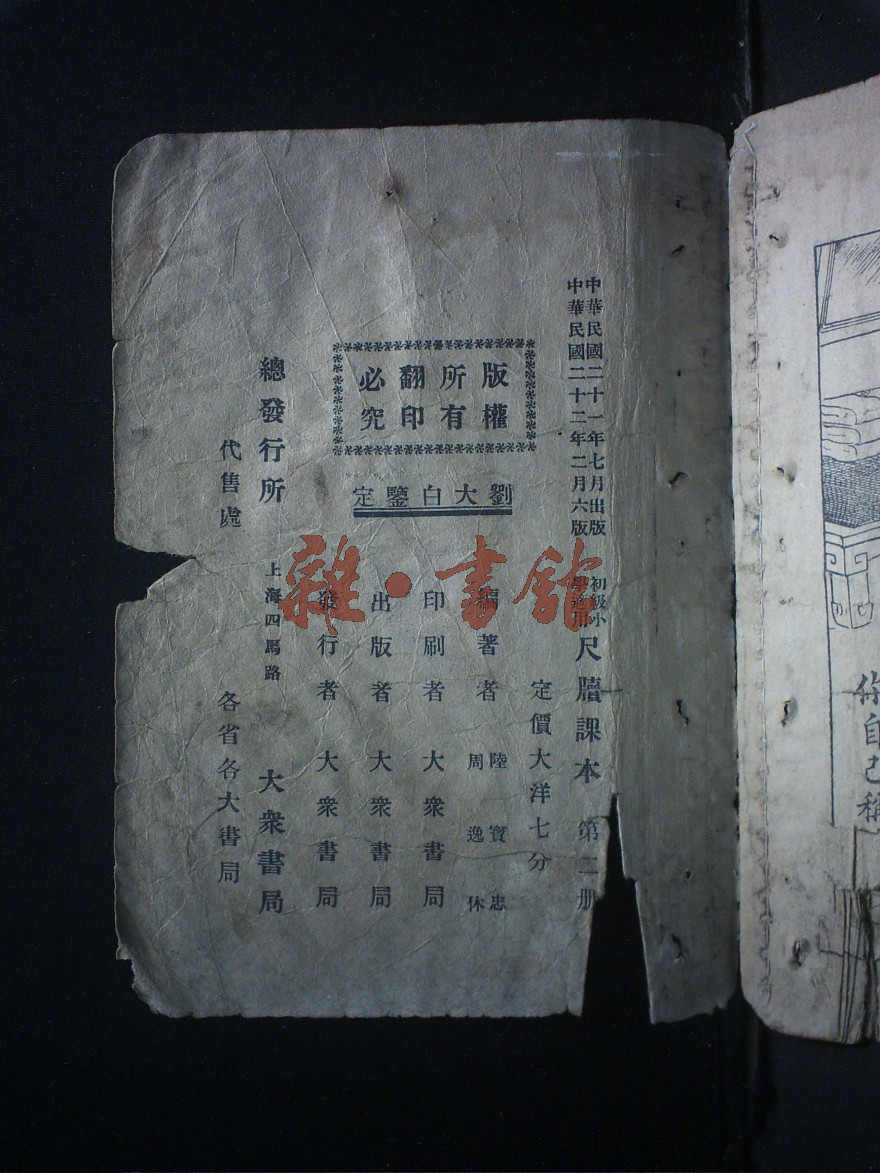 中華民國二十一年七月出版
中華民國二十二年二月六版
初級小
學適用
尺牘課本 第二册
定價大洋七分
版權
所有
翻印
必究
劉大白鑒定
編著者 陸寶忠
周逸休
印刷者 大衆書局
出版者 大衆書局
發行者 大衆書局
總發行所 上海四馬路 大衆書局
代售處 各省各大書局
雜·書館
你自己稱